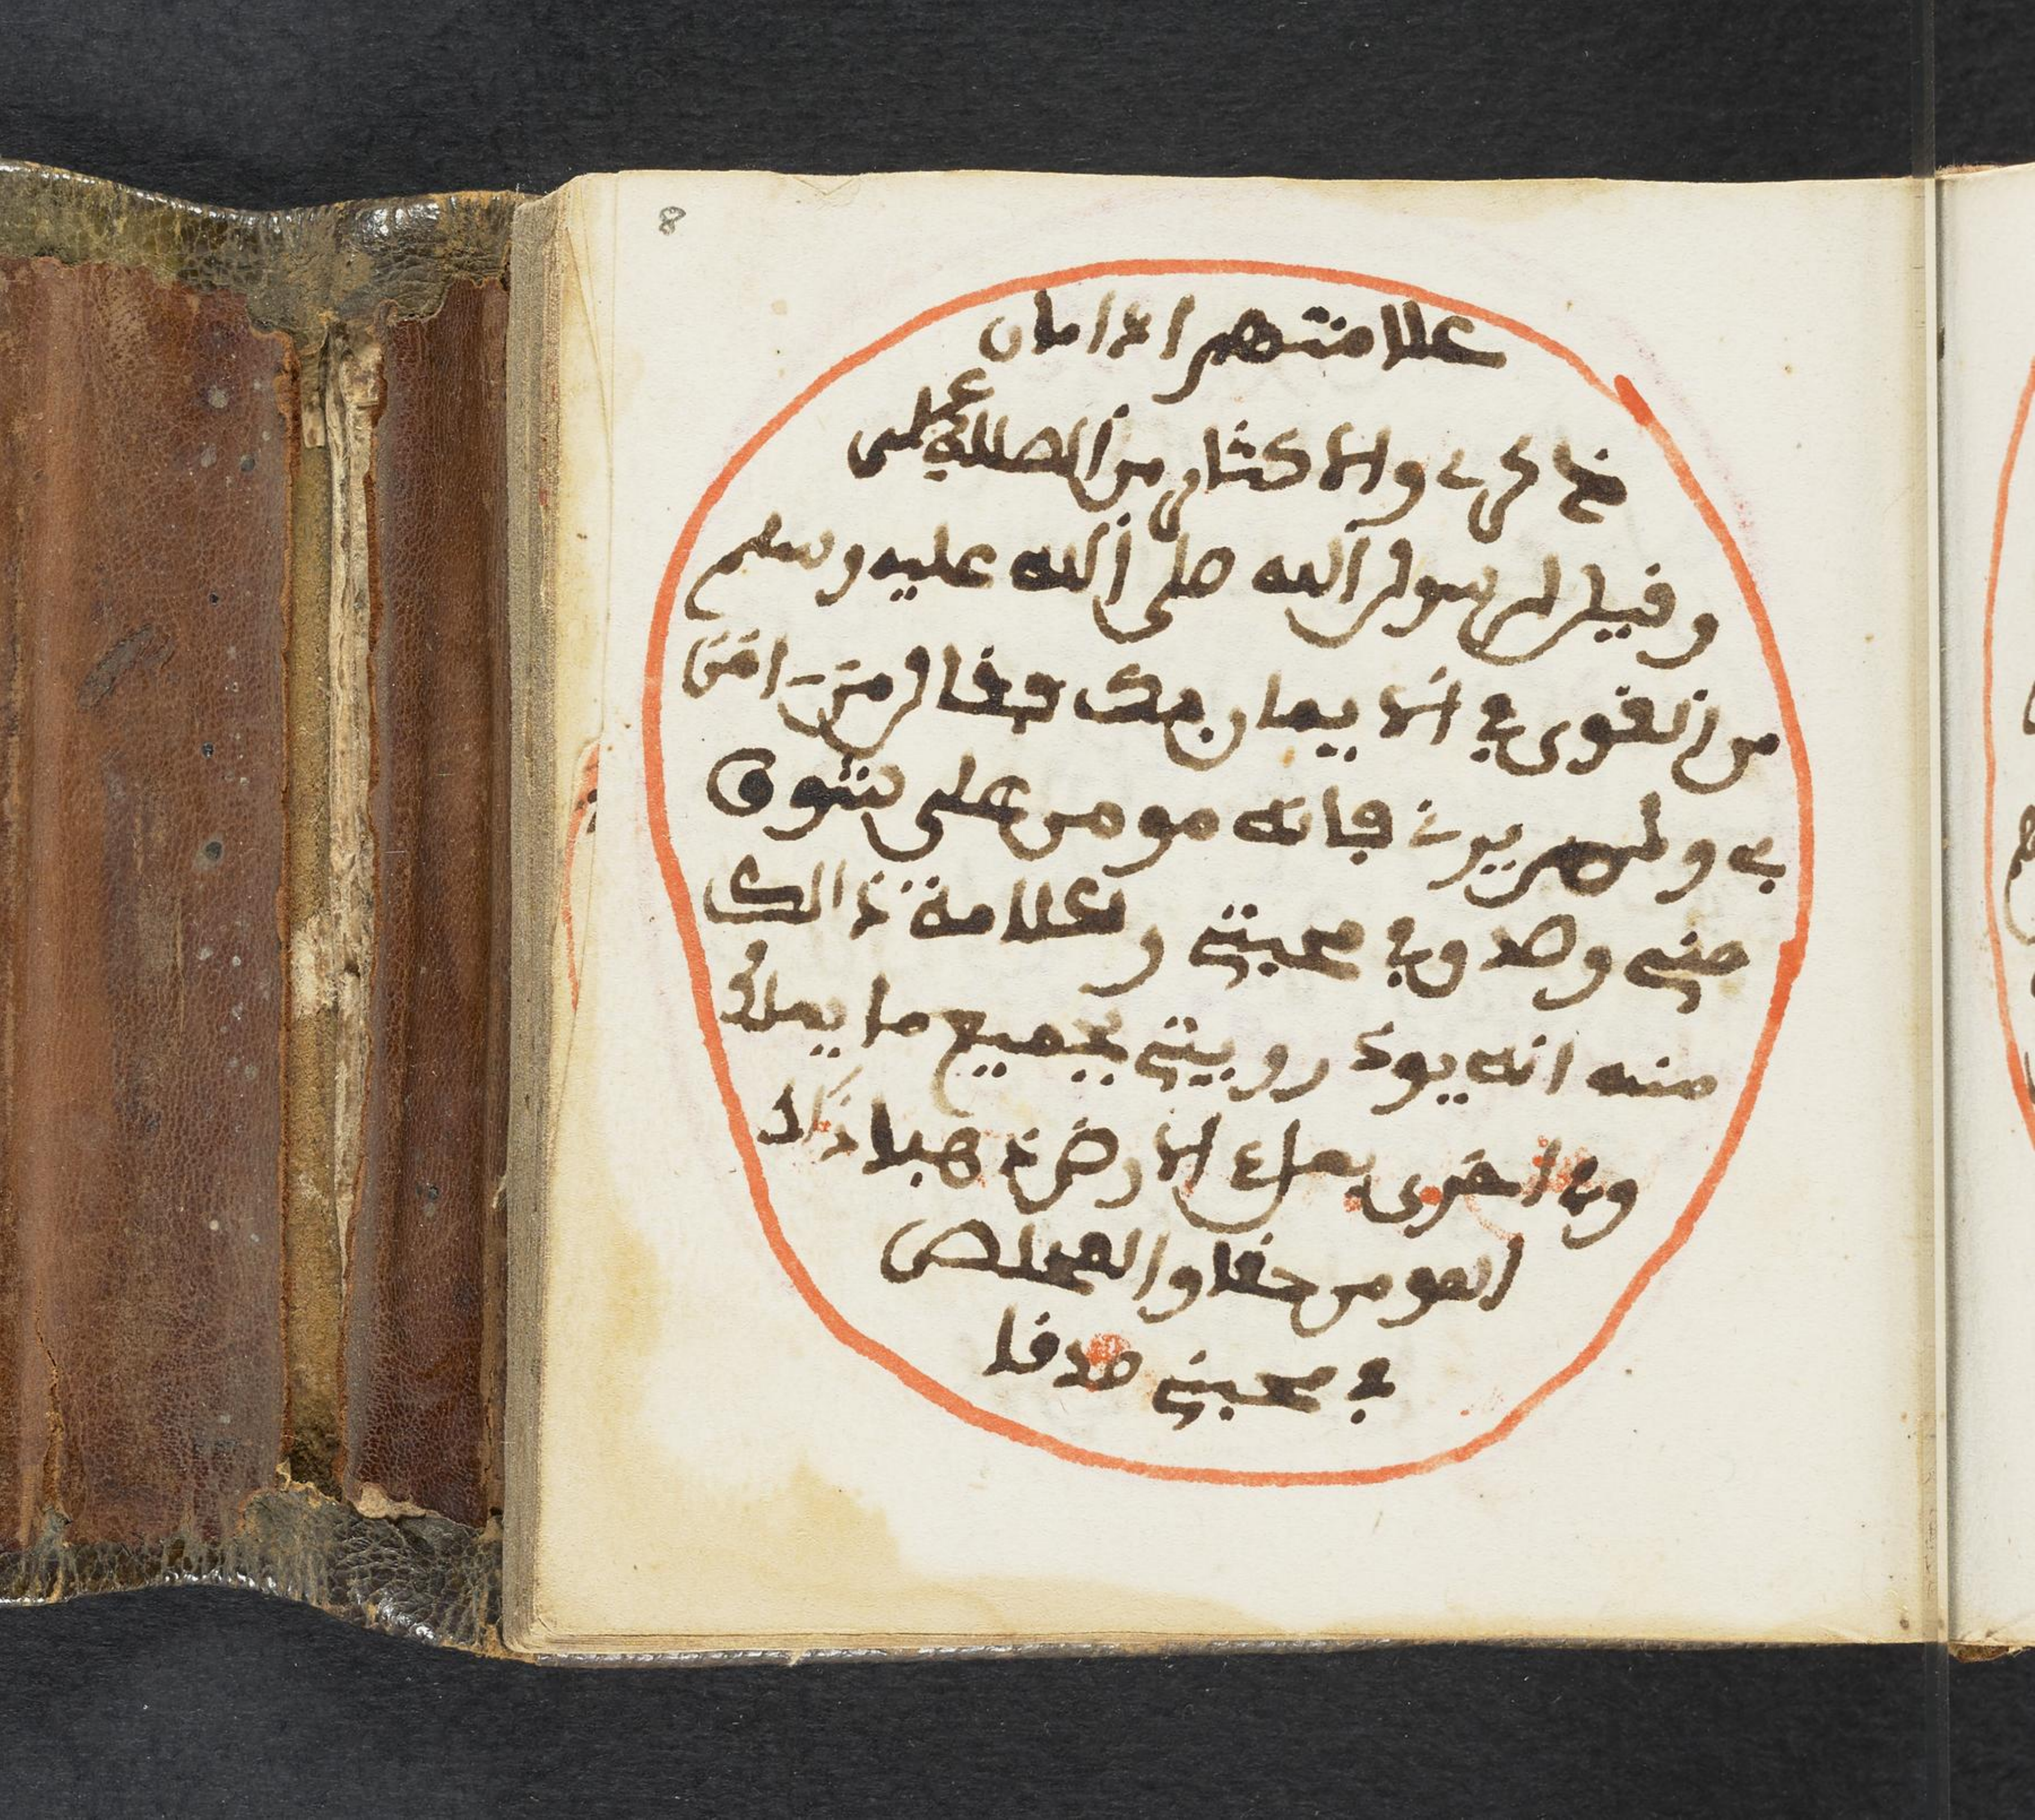 8
علامتهم ادامان
ذكرى والاكثار من الصلاة على
وقيل لرسول الله صلى الله عليه وسلم
من القوى في الايمان بك فقال من امن
بي ولم يرني فانه مومن على شوق
مني وصدق في محبتي وعلامة ذالك
منه انه يود رويتي بجميع ما يملك
وفي اخرى بملء الارض ذهبا ذالك
المومن حقا والمخلص
في محبتي صدقا